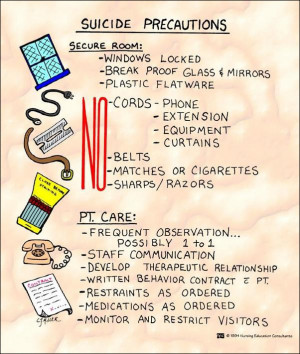 SUICIDE PRECAUTIONS
SECURE ROOM:
-WINDOWS LOCKED
-BREAK PROOF GLASS & MIRRORS
-PLASTIC FLATWARE
NO
-CORDS - PHONE
- EXTENSION
- EQUIPMENT
- CURTAINS
-BELTS
-MATCHES OR CIGARETTES
-SHARPS/RAZORS
PT. CARE:
-FREQUENT OBSERVATION...
POSSIBLY 1 to 1
-STAFF COMMUNICATION
-DEVELOP THERAPEUTIC RELATIONSHIP
-WRITTEN BEHAVIOR CONTRACT c̄ PT.
-RESTRAINTS AS ORDERED
-MEDICATIONS AS ORDERED
-MONITOR AND RESTRICT VISITORS
CONTRACT
© 1994 Nursing Education Consultants